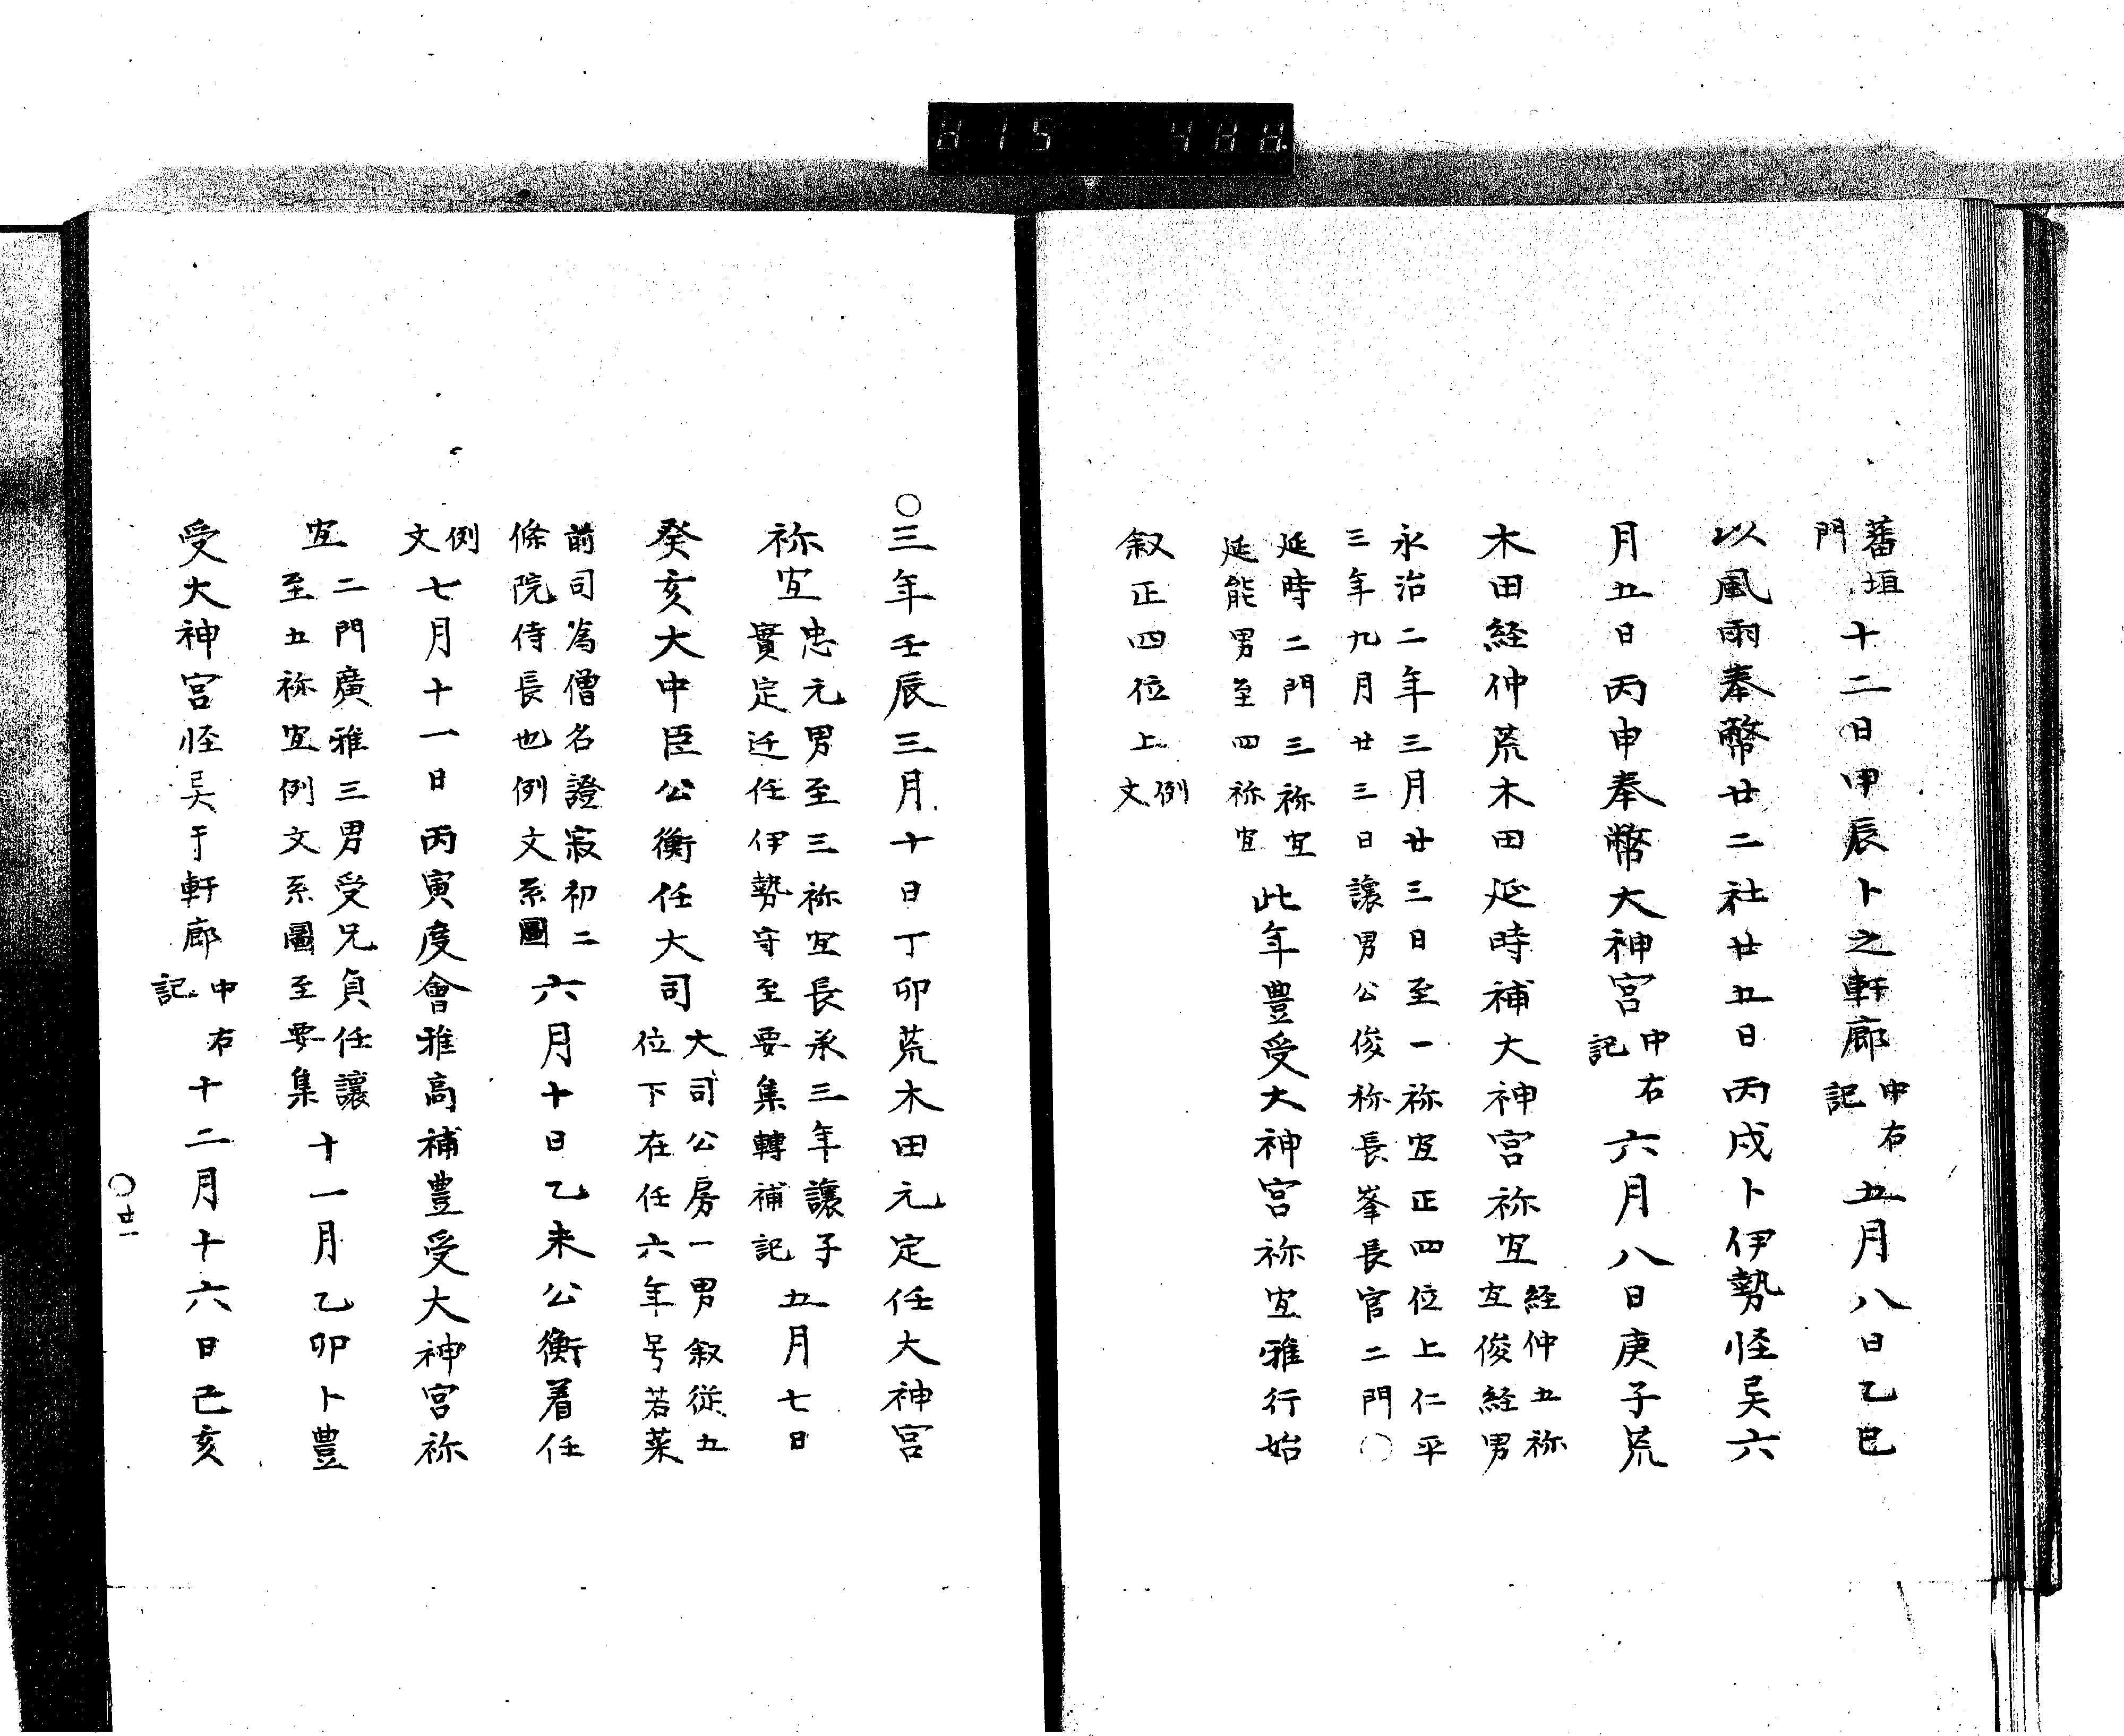 蕃垣門十二日甲辰卜之軒廊中右記五月八日乙巳
以風雨奉幣廿二社廿五日丙戌卜伊勢怪吴六
月五日丙申奉幣大神宮中右記六月八日庚子荒
木田経仲荒木田延時補大神宮祢宜経仲五祢宜俊経男
永治二年三月廿三日至一祢宜正四位上仁平
三年九月廿三日讓男公俊称長峯長官二門〇
延時二門三祢宜
延能男至四祢宜
此年豊受大神宮祢宜雅行始
叙正四位上例文
〇三年壬辰三月十日丁卯荒木田元定任大神宮
祢宜忠元男至三祢宜長承三年讓子
實定迁任伊勢守至要集轉補記
五月七日
癸亥大中臣公衡任大司大司公房一男叙従五
位下在任六年号若菜
前司為僧名證寂初二
條院侍長也例文系圖
六月十日乙未公衡着任
例文七月十一日丙寅度會雅高補豊受大神宮祢
宜二門廣雅三男受兄負任讓
至五祢宜例文系圖至要集
十一月乙卯卜豊
受大神宮怪吴于軒廊中右記十二月十六日己亥
〇廿一